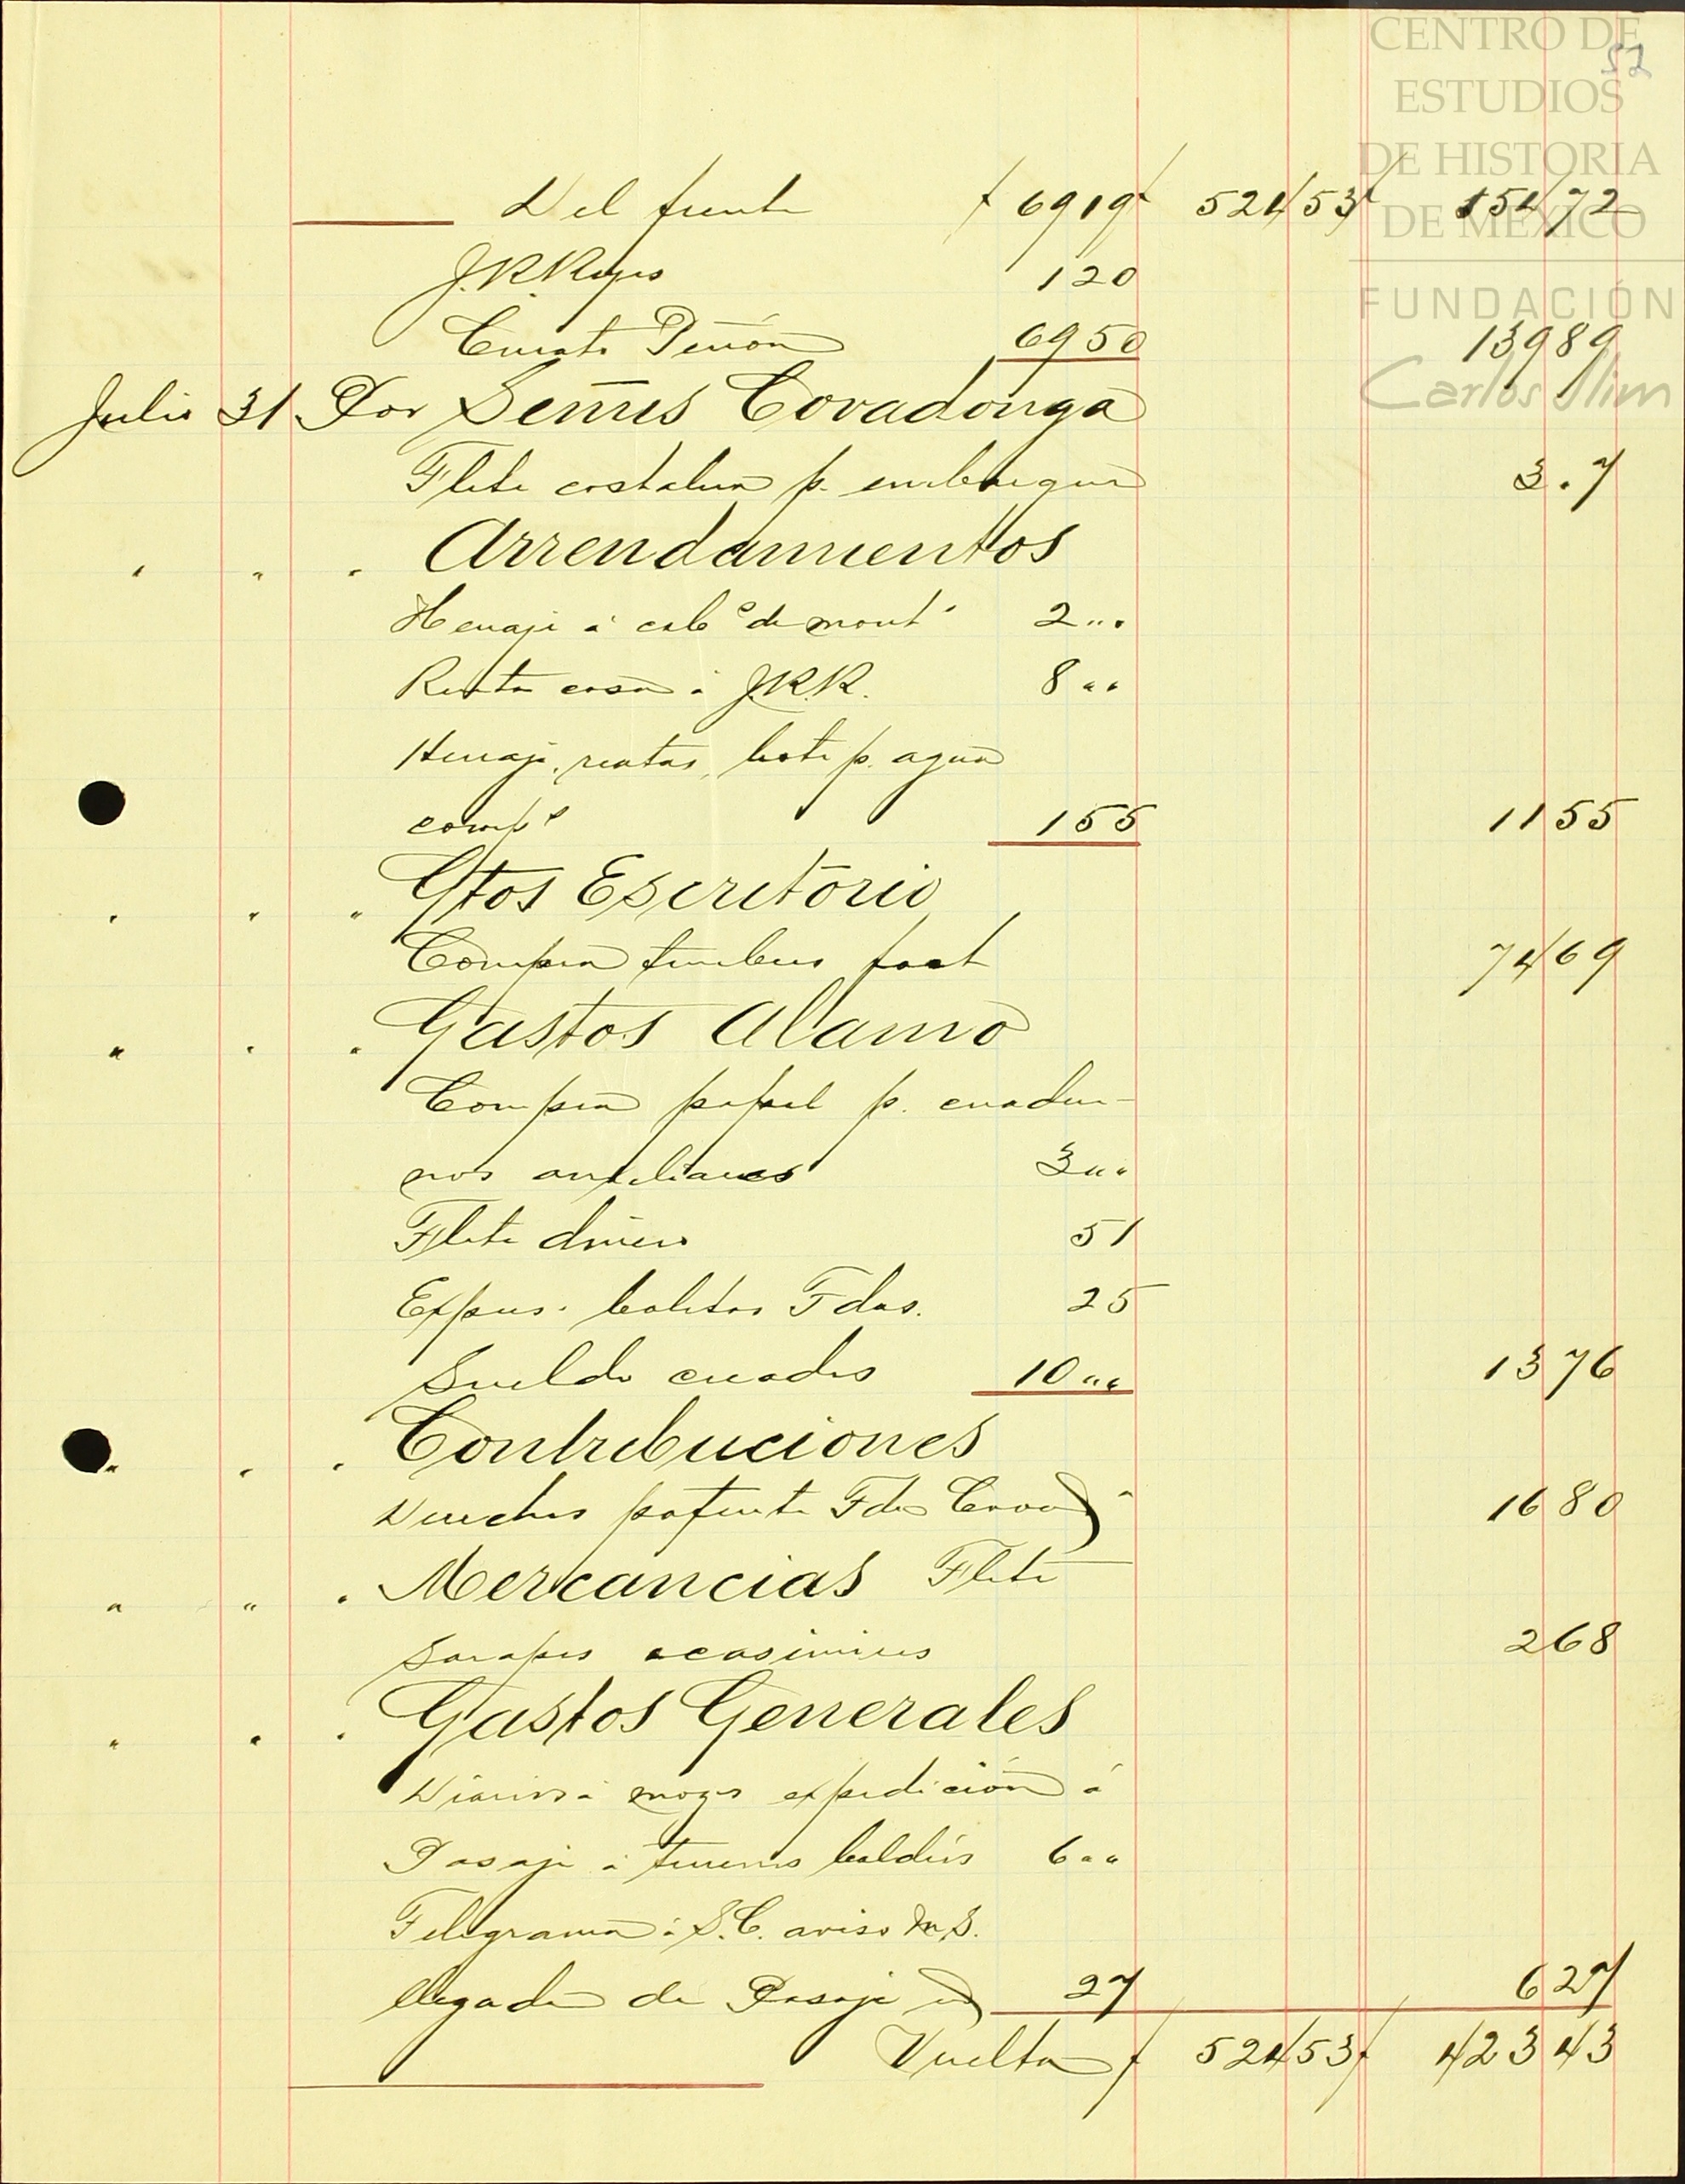 CENTRO DE
ESTUDIOS
DE HISTORIA
DE MÉXICO
FUNDACIÓN
Carlos Slim
52
Del frente 69 19 524 53 154 72
J.R.Reyes 1 20
Peñón 69 50 139 89
Julio 31 Por Semis Covadonga
Flete costalera p. embarque 3.7
" " " Arrendamientos
Henaje á cab° de mont 2 ""
Renta casa á J.R.R. 8 ""
Henaje, reatas, bote p. agua
comp° 1 55 11 55
" " " Gtos Escritorio
Compra timbres 74 69
" " " Gastos Alamo
Compra papel p. cuader-
nos auxiliares 3 ""
Flete dinero 51
Expens. boletas Fdas. 25
Sueldo criados 10 "" 13 76
" " " Contribuciones
Derechos patente Fdas Covad 16 80
" " " Mercancias Flete
Sarapes 2 68
" " " Gastos Generales
Diarios á mozos expedición á
Pasaje á terrenos baldíos 6 ""
Telegrama á S.C. aviso M.S.
llegada de Pasaje 27 6 27
Vuelta 524 53 423 43